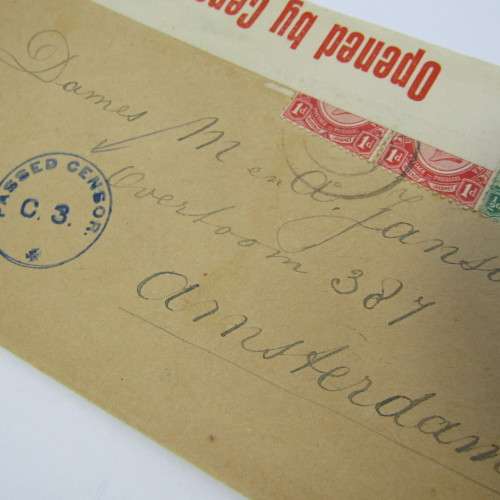 Opened by Cens
Dames M en A. Jans
Overtoom 387
Amsterdam
PASSED CENSOR.
C. 3.
1d 1d
1d 1d
½